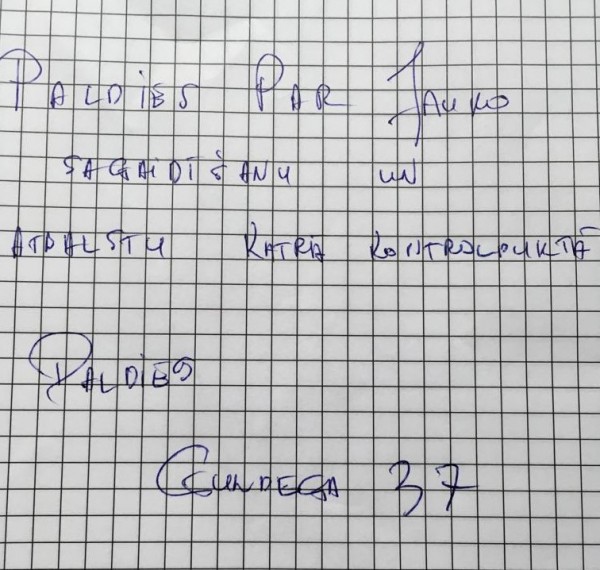 PALDIES PAR JAUKO
SAGAIDĪŠANU UN
ATBALSTU KATRĀ KONTROLPUKTĀ
PALDIES
GUNDEGA 37